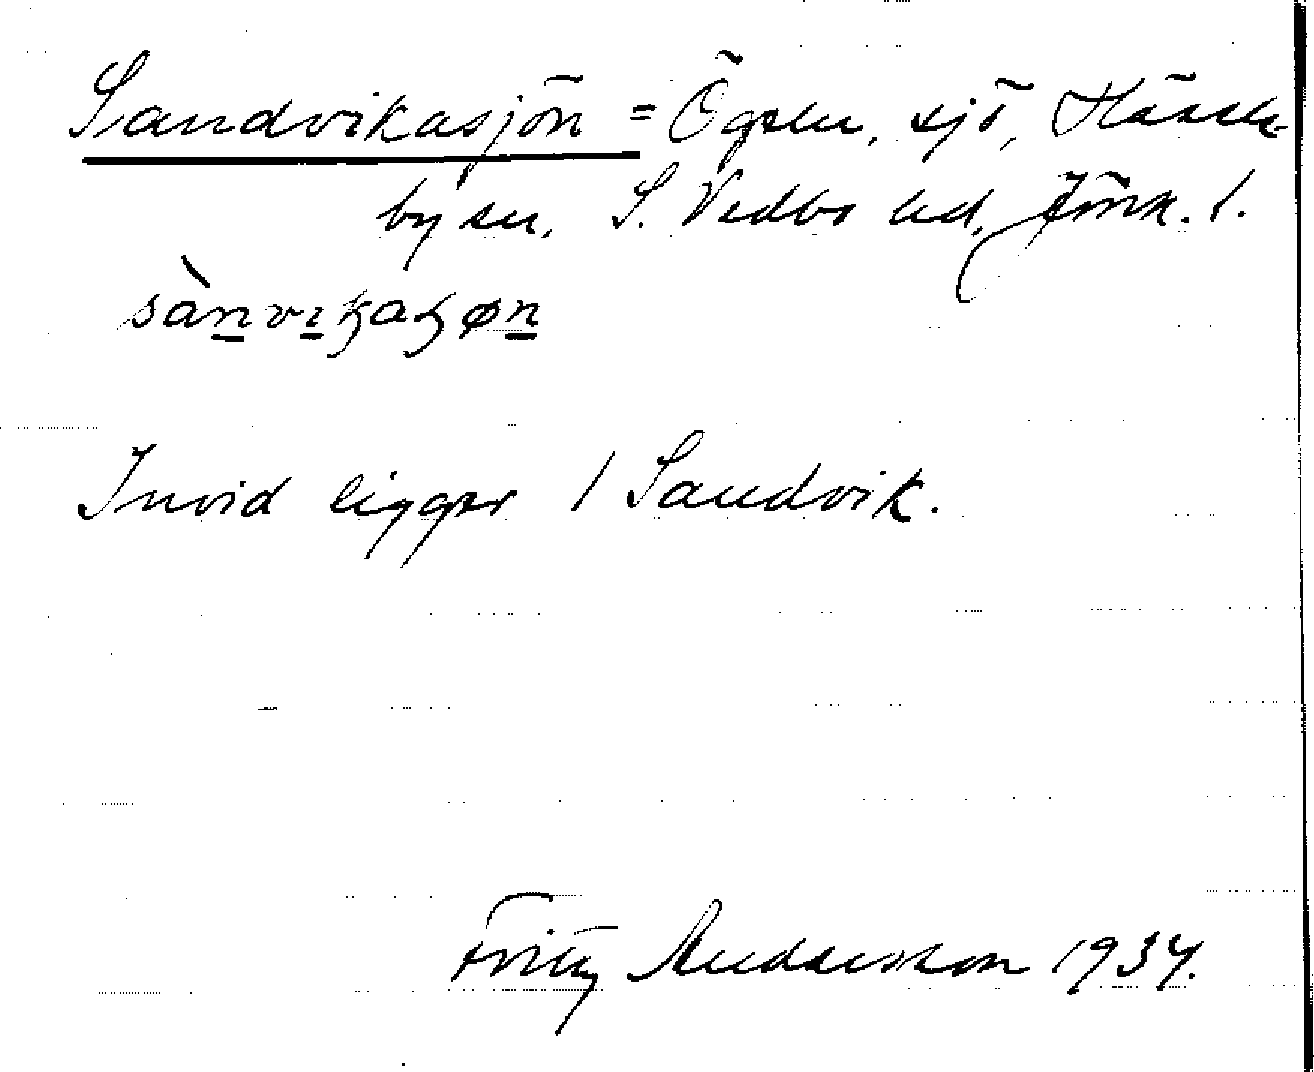 Sandvikasjön = Ögeln, sjö, Hässle-
by sn, S. Vedbo hd, Jönk. l.
Invid ligger / Sandvik.
Fritz Andersson 1934.